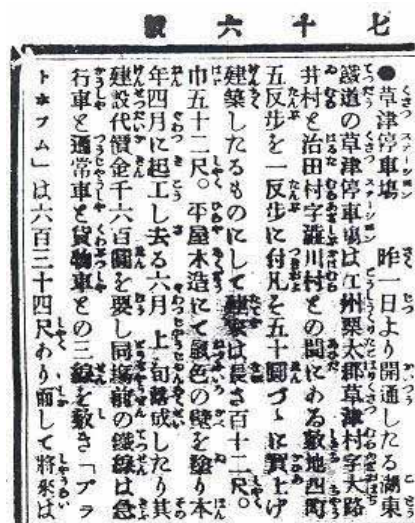 七十六號
●草津停車塲 昨一日より開通したる湖東
鐵道の草津停車塲は江州栗太郡草津村字大路
井村と治田村字澁川村との間にある敷地四町
五反步を一反步に付凡そ五十圓づゝに買上げ
建築したるものにして建家は長さ百十二尺。
巾五十二尺。平屋木造にて鼠色の壁を塗り本
年四月に起工し去る六月上旬落成したり其
建設代價金千六百圓を要し同塲前の鐵線は急
行車と通常車と貨物車との三線を敷き「プラ
トホフム」は六百三十四尺あり而して將來は